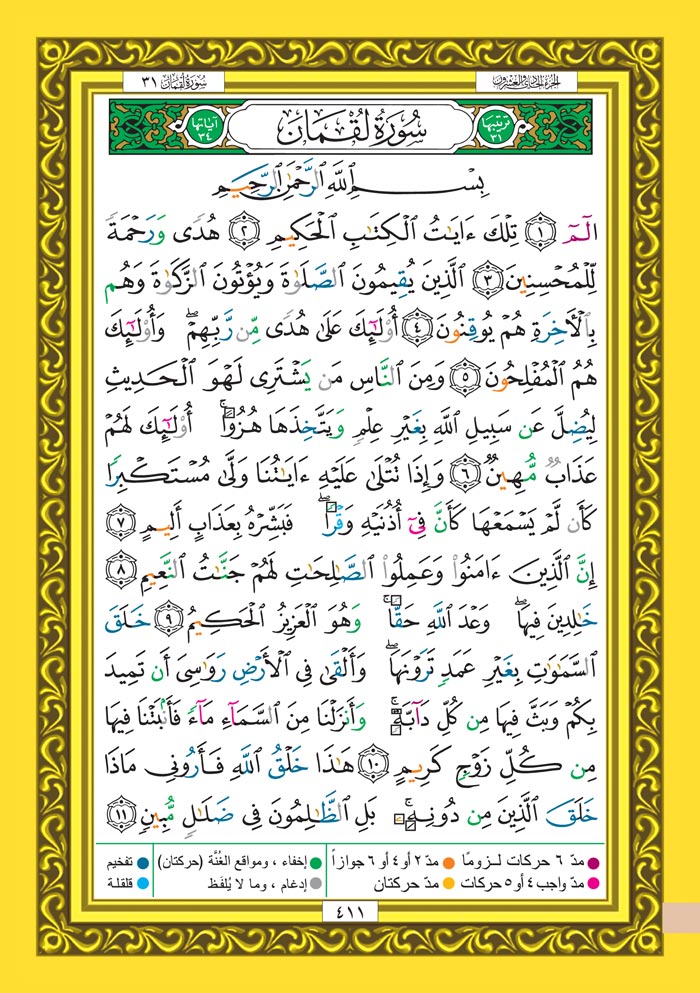 الجزء الحادي والعشرون
سورة لقمان ٣١
ترتيبها ٣١
سُورَةُ لُقْمَان
آياتها ٣٤
بِسْمِ ٱللَّهِ ٱلرَّحْمَٰنِ ٱلرَّحِيمِ
الٓمٓ ١ تِلْكَ ءَايَٰتُ ٱلْكِتَٰبِ ٱلْحَكِيمِ ٢ هُدًى وَرَحْمَةً
لِّلْمُحْسِنِينَ ٣ ٱلَّذِينَ يُقِيمُونَ ٱلصَّلَوٰةَ وَيُؤْتُونَ ٱلزَّكَوٰةَ وَهُم
بِٱلْءَاخِرَةِ هُمْ يُوقِنُونَ ٤ أُو۟لَٰٓئِكَ عَلَىٰ هُدًى مِّن رَّبِّهِمْ ۖ وَأُو۟لَٰٓئِكَ
هُمُ ٱلْمُفْلِحُونَ ٥ وَمِنَ ٱلنَّاسِ مَن يَشْتَرِى لَهْوَ ٱلْحَدِيثِ
لِيُضِلَّ عَن سَبِيلِ ٱللَّهِ بِغَيْرِ عِلْمٍ وَيَتَّخِذَهَا هُزُوًا ۚ أُو۟لَٰٓئِكَ لَهُمْ
عَذَابٌ مُّهِينٌ ٦ وَإِذَا تُتْلَىٰ عَلَيْهِ ءَايَٰتُنَا وَلَّىٰ مُسْتَكْبِرًا
كَأَن لَّمْ يَسْمَعْهَا كَأَنَّ فِىٓ أُذُنَيْهِ وَقْرًا ۖ فَبَشِّرْهُ بِعَذَابٍ أَلِيمٍ ٧
إِنَّ ٱلَّذِينَ ءَامَنُوا۟ وَعَمِلُوا۟ ٱلصَّٰلِحَٰتِ لَهُمْ جَنَّٰتُ ٱلنَّعِيمِ ٨
خَٰلِدِينَ فِيهَا ۖ وَعْدَ ٱللَّهِ حَقًّا ۚ وَهُوَ ٱلْعَزِيزُ ٱلْحَكِيمُ ٩ خَلَقَ
ٱلسَّمَٰوَٰتِ بِغَيْرِ عَمَدٍ تَرَوْنَهَا ۖ وَأَلْقَىٰ فِى ٱلْأَرْضِ رَوَٰسِىَ أَن تَمِيدَ
بِكُمْ وَبَثَّ فِيهَا مِن كُلِّ دَآبَّةٍ ۚ وَأَنزَلْنَا مِنَ ٱلسَّمَآءِ مَآءً فَأَنۢبَتْنَا فِيهَا
مِن كُلِّ زَوْجٍ كَرِيمٍ ١٠ هَٰذَا خَلْقُ ٱللَّهِ فَأَرُونِى مَاذَا
خَلَقَ ٱلَّذِينَ مِن دُونِهِۦ ۚ بَلِ ٱلظَّٰلِمُونَ فِى ضَلَٰلٍ مُّبِينٍ ١١
مدّ ٦ حركات لـزومًا
مدّ ٢ أو ٤ أو ٦ جوازاً
إخفاء ، ومواقع الغُنَّة (حركتان)
تفخيم
مدّ واجب ٤ أو ٥ حركات
مدّ حركتان
إدغام ، وما لا يُلفَظ
قلقلة
٤١١